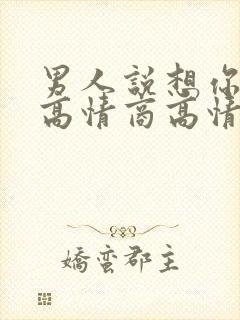 男人說想你
高情商高情
嬌蠻郡主